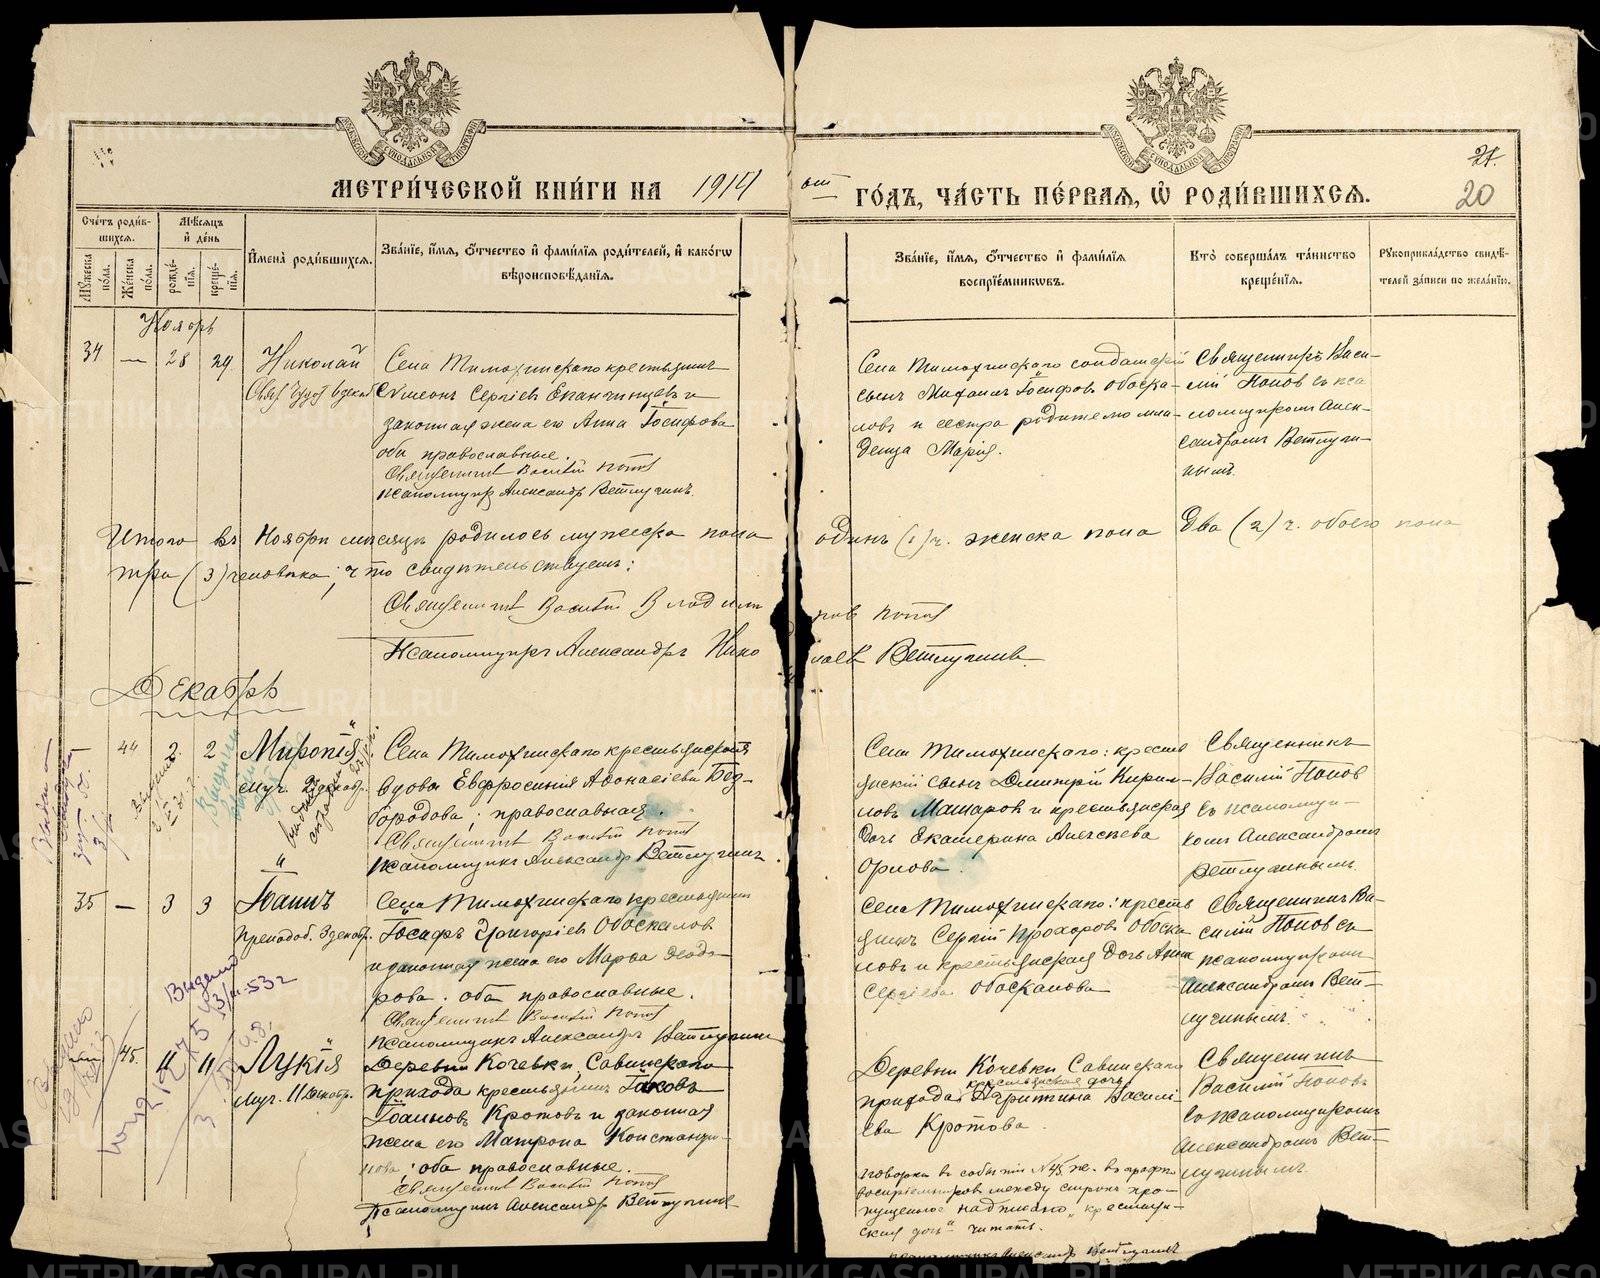 МЕТРИ́ЧЕСКОЙ КНИ́ГИ НА 1914 ый ГО́ДЪ, ЧА́СТЬ ПЕ́РВАЯ, Ѡ РОДИ́ВШИХСЯ.
21.
20
Счетъ роди́вшихся.
Мѣсяцъ и день
Мꙋжеска пола.
Же́нска пола.
рожде́нїя.
креще́нїя.
И́мена роди́вшихся.
Зва́нїе, и́мя, ѻ́тчество и фами́лїя роди́телей, и како́гѡ вѣроисповѣ́данїя.
Зва́нїе, и́мя, ѻ́тчество и фами́лїя воспрїе́мникѡвъ.
Кто̀ соверша́лъ та́инство креще́нїя.
Рꙋкоприкла́дство свидѣ́телей за́писи по жела́нїю.
Ноябрь
34 — 28 29 Николай
Села Тимохинскаго крестьянинъ
Симеонъ Сергіевъ Епанчинцевъ и
законная жена его Анна Іосифова
оба православные.
Священникъ Василій Поповъ
Псаломщикъ Александръ Ветлугинъ.
Села Тимохинскаго солдатскій
сынъ Михаилъ Іосифовъ Обоска-
ловъ и сестра родителю мла-
денца Марія.
Священникъ Васи-
лій Поповъ съ пса
ломщикомъ Алек-
сандромъ Ветлуги-
нымъ.
Итого въ Ноябрѣ мѣсяцѣ родилось мужеска пола одинъ (1) ч. женска пола два (2) ч. обоего пола
три (3) человѣка; что свидѣтельствуемъ:
Священникъ Василій Владиміровъ Поповъ
Псаломщикъ Александръ Николаевъ Ветлугинъ.
Декабрь
44 2. 2 Миропія
Муч. 2 декабр.
Села Тимохинскаго крестьянская
вдова Евфросинія Аѳонасіева Без-
бородова; православная.
Священникъ Василій Поповъ
Псаломщикъ Александръ Ветлугинъ.
Села Тимохинскаго: кресть
янскій сынъ Димитрій Кирил-
ловъ Машаровъ и крестьянская
дочь Екатерина Алексѣева
Орлова.
Священникъ
Василій Поповъ
съ псаломщи-
комъ Александромъ
Ветлугинымъ.
35 — 3 3 Іоаннъ
Преподоб. 3 декабр.
Села Тимохинскаго крестьянинъ
Іосифъ Григоріевъ Обоскаловъ
и законная жена его Марѳа Ѳеодо-
рова. оба православные.
Священникъ Василій Поповъ
Псаломщикъ Александръ Ветлугинъ
Села Тимохинскаго: кресть
янинъ Сергій Прохоровъ Обоска
ловъ и крестьянская дочь Анна
Сергіева Обоскалова
Священникъ Ва-
силій Поповъ съ
псаломщикомъ
Александромъ Вет-
лугинымъ.
Видано
45. 11 11 Лукія
Муч. 11 декабр.
Деревни Кочевки, Савинскаго
прихода крестьянинъ Іаковъ
Іоанновъ Кротовъ и законная
жена его Матрона Констанди-
нова; оба православные.
Священникъ Василій Поповъ
Псаломщикъ Александръ Ветлугинъ
Деревни Кочевки Савинскаго
крестьянская дочь
прихода Агрипина Василі-
ева Кротова.
Священникъ
Василій Поповъ
со псаломщикомъ
Александромъ Вет-
лугинымъ.
Оговорка въ событіи №45 же. въ графѣ
воспріемниковъ между строкъ про-
пущенное надписано „крестьян-
ская дочь" читать.
Псаломщикъ Александръ Ветлугинъ